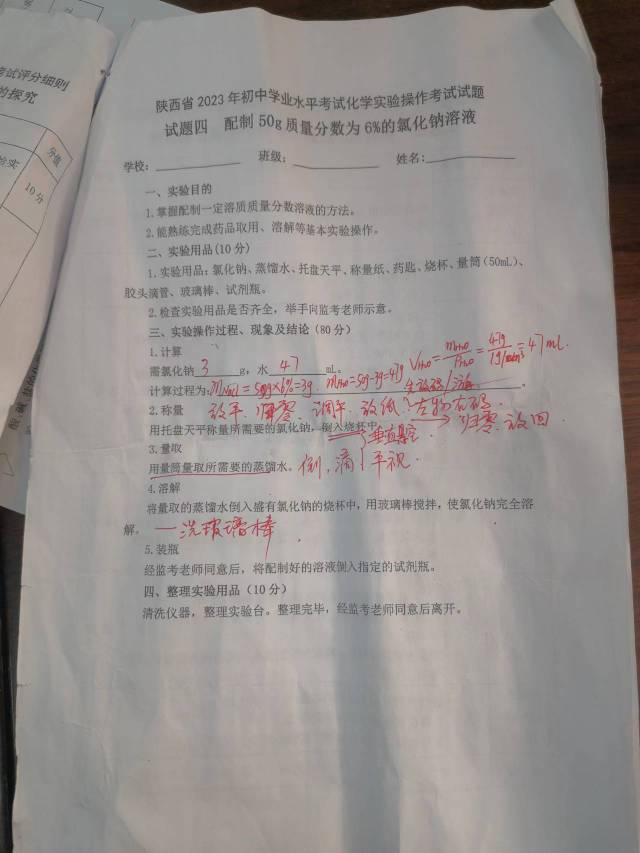 考试评分细则
的探究
分值
10分
陕西省 2023 年初中学业水平考试化学实验操作考试试题
试题四 配制 50g 质量分数为 6%的氯化钠溶液
学校: 班级: 姓名:
一、实验目的
1.掌握配制一定溶质质量分数溶液的方法。
2.能熟练完成药品取用、溶解等基本实验操作。
二、实验用品(10 分)
1.实验用品:氯化钠、蒸馏水、托盘天平、称量纸、药匙、烧杯、量筒(50mL)、
胶头滴管、玻璃棒、试剂瓶。
2.检查实验用品是否齐全,举手向监考老师示意。
三、实验操作过程、现象及结论(80 分)
1.计算
需氯化钠 3 g,水 47 mL。
计算过程为:mNaCl=50g×6%=3g. mH2O=50g-3g=47g VH2O=mH2O/ρH2O=47g/1g/cm³=47mL.
2.称量 放平、归零、调平、放纸 左物右码. 先放码/游码
用托盘天平称量所需要的氯化钠,倒入烧杯中。 → 归零、放回
3.量取 垂直悬空
用量筒量取所需要的蒸馏水。 倒,滴 平视
4.溶解
将量取的蒸馏水倒入盛有氯化钠的烧杯中,用玻璃棒搅拌,使氯化钠完全溶
解。 — 洗玻璃棒
5.装瓶
经监考老师同意后,将配制好的溶液倒入指定的试剂瓶。
四、整理实验用品(10 分)
清洗仪器,整理实验台。整理完毕,经监考老师同意后离开。